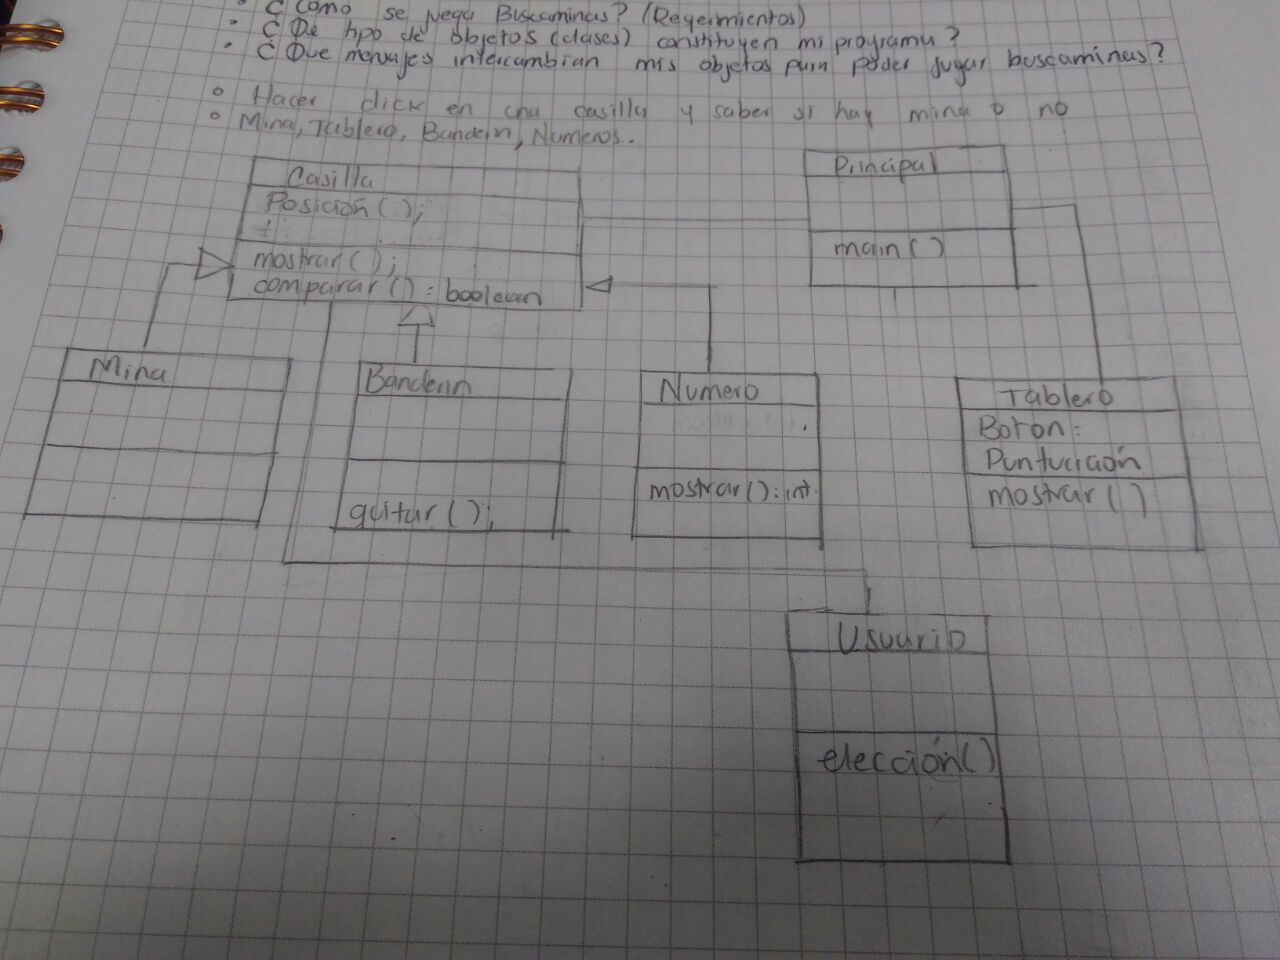 • ¿Cómo se juega Buscaminas? (Reqerimientos)
• ¿De tipo de objetos (clases) constituyen mi programa?
• ¿Que mensajes intercambian mis objetos para poder jugar buscaminas?
• Hacer click en una casilla y saber si hay mina o no
• Mina, Tablero, Banderin, Numeros.
Casilla
Posición();
mostrar();
comparar(): boolean
Principal
main()
Mina
Banderin
quitar();
Numero
mostrar(): int.
Tablero
Boton:
Puntuación
mostrar()
Usuario
elección()